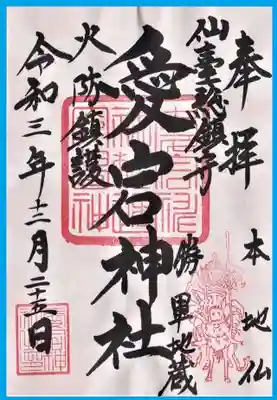 奉拝
本地仏
仙臺総鎮守
勝軍地蔵
愛宕神社
火防鎮護
令和三年十二月二十五日